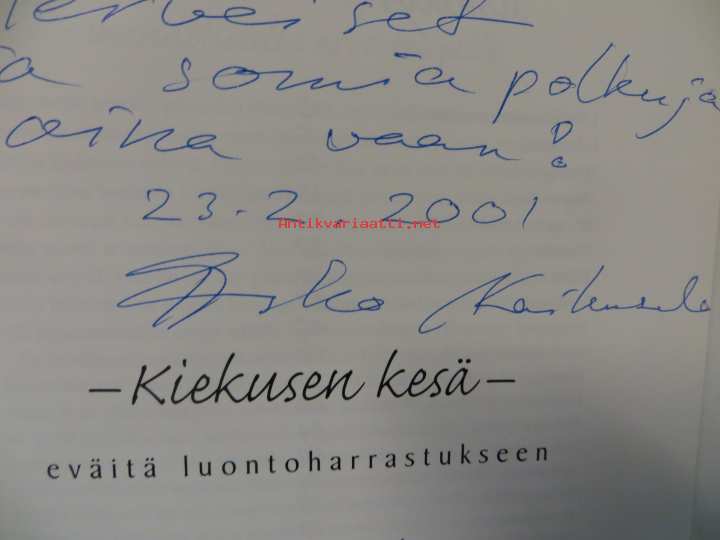 Terveiset
ja somia polkuja
aina vaan!
23.2.2001
Antikvariaatti.net
Asko Kaikusalo
– Kiekusen kesä –
eväitä luontoharrastukseen